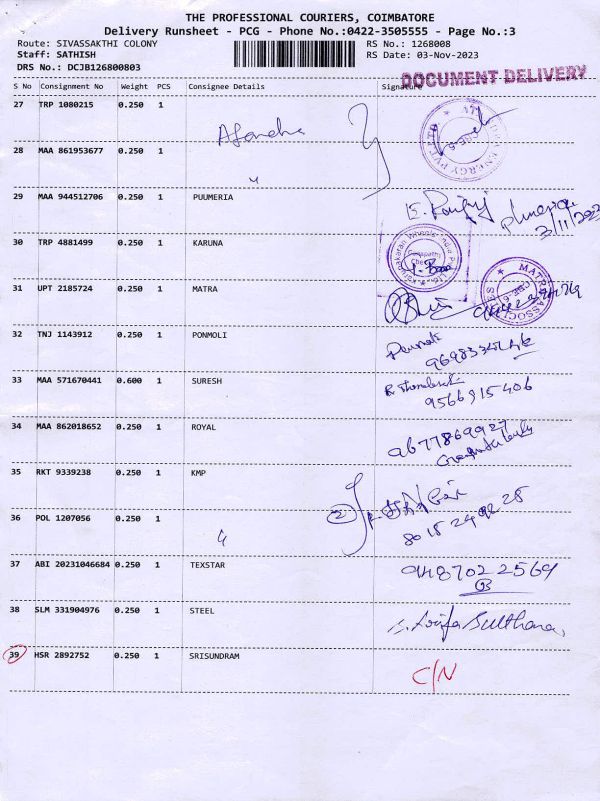 THE PROFESSIONAL COURIERS, COIMBATORE
Delivery Runsheet - PCG - Phone No.:0422-3505555 - Page No.:3
Route: SIVASSAKTHI COLONY RS No.: 1268008
Staff: SATHISH RS Date: 03-Nov-2023
DRS No.: DCJB126800803
DOCUMENT DELIVERY
S No Consignment No Weight PCS Consignee Details Signature
27 TRP 1080215 0.250 1
28 MAA 861953677 0.250 1
29 MAA 944512706 0.250 1 PUUMERIA
3/11/2023
30 TRP 4881499 0.250 1 KARUNA
31 UPT 2185724 0.250 1 MATRA
32 TNJ 1143912 0.250 1 PONMOLI
33 MAA 571670441 0.600 1 SURESH
9566915406
34 MAA 862018652 0.250 1 ROYAL
9677869927
35 RKT 9339238 0.250 1 KMP
36 POL 1207056 0.250 1
8015249228
37 ABI 20231046684 0.250 1 TEXSTAR
9487022569
38 SLM 331904976 0.250 1 STEEL
Sulthana,
39 HSR 2892752 0.250 1 SRISUNDRAM
C/N